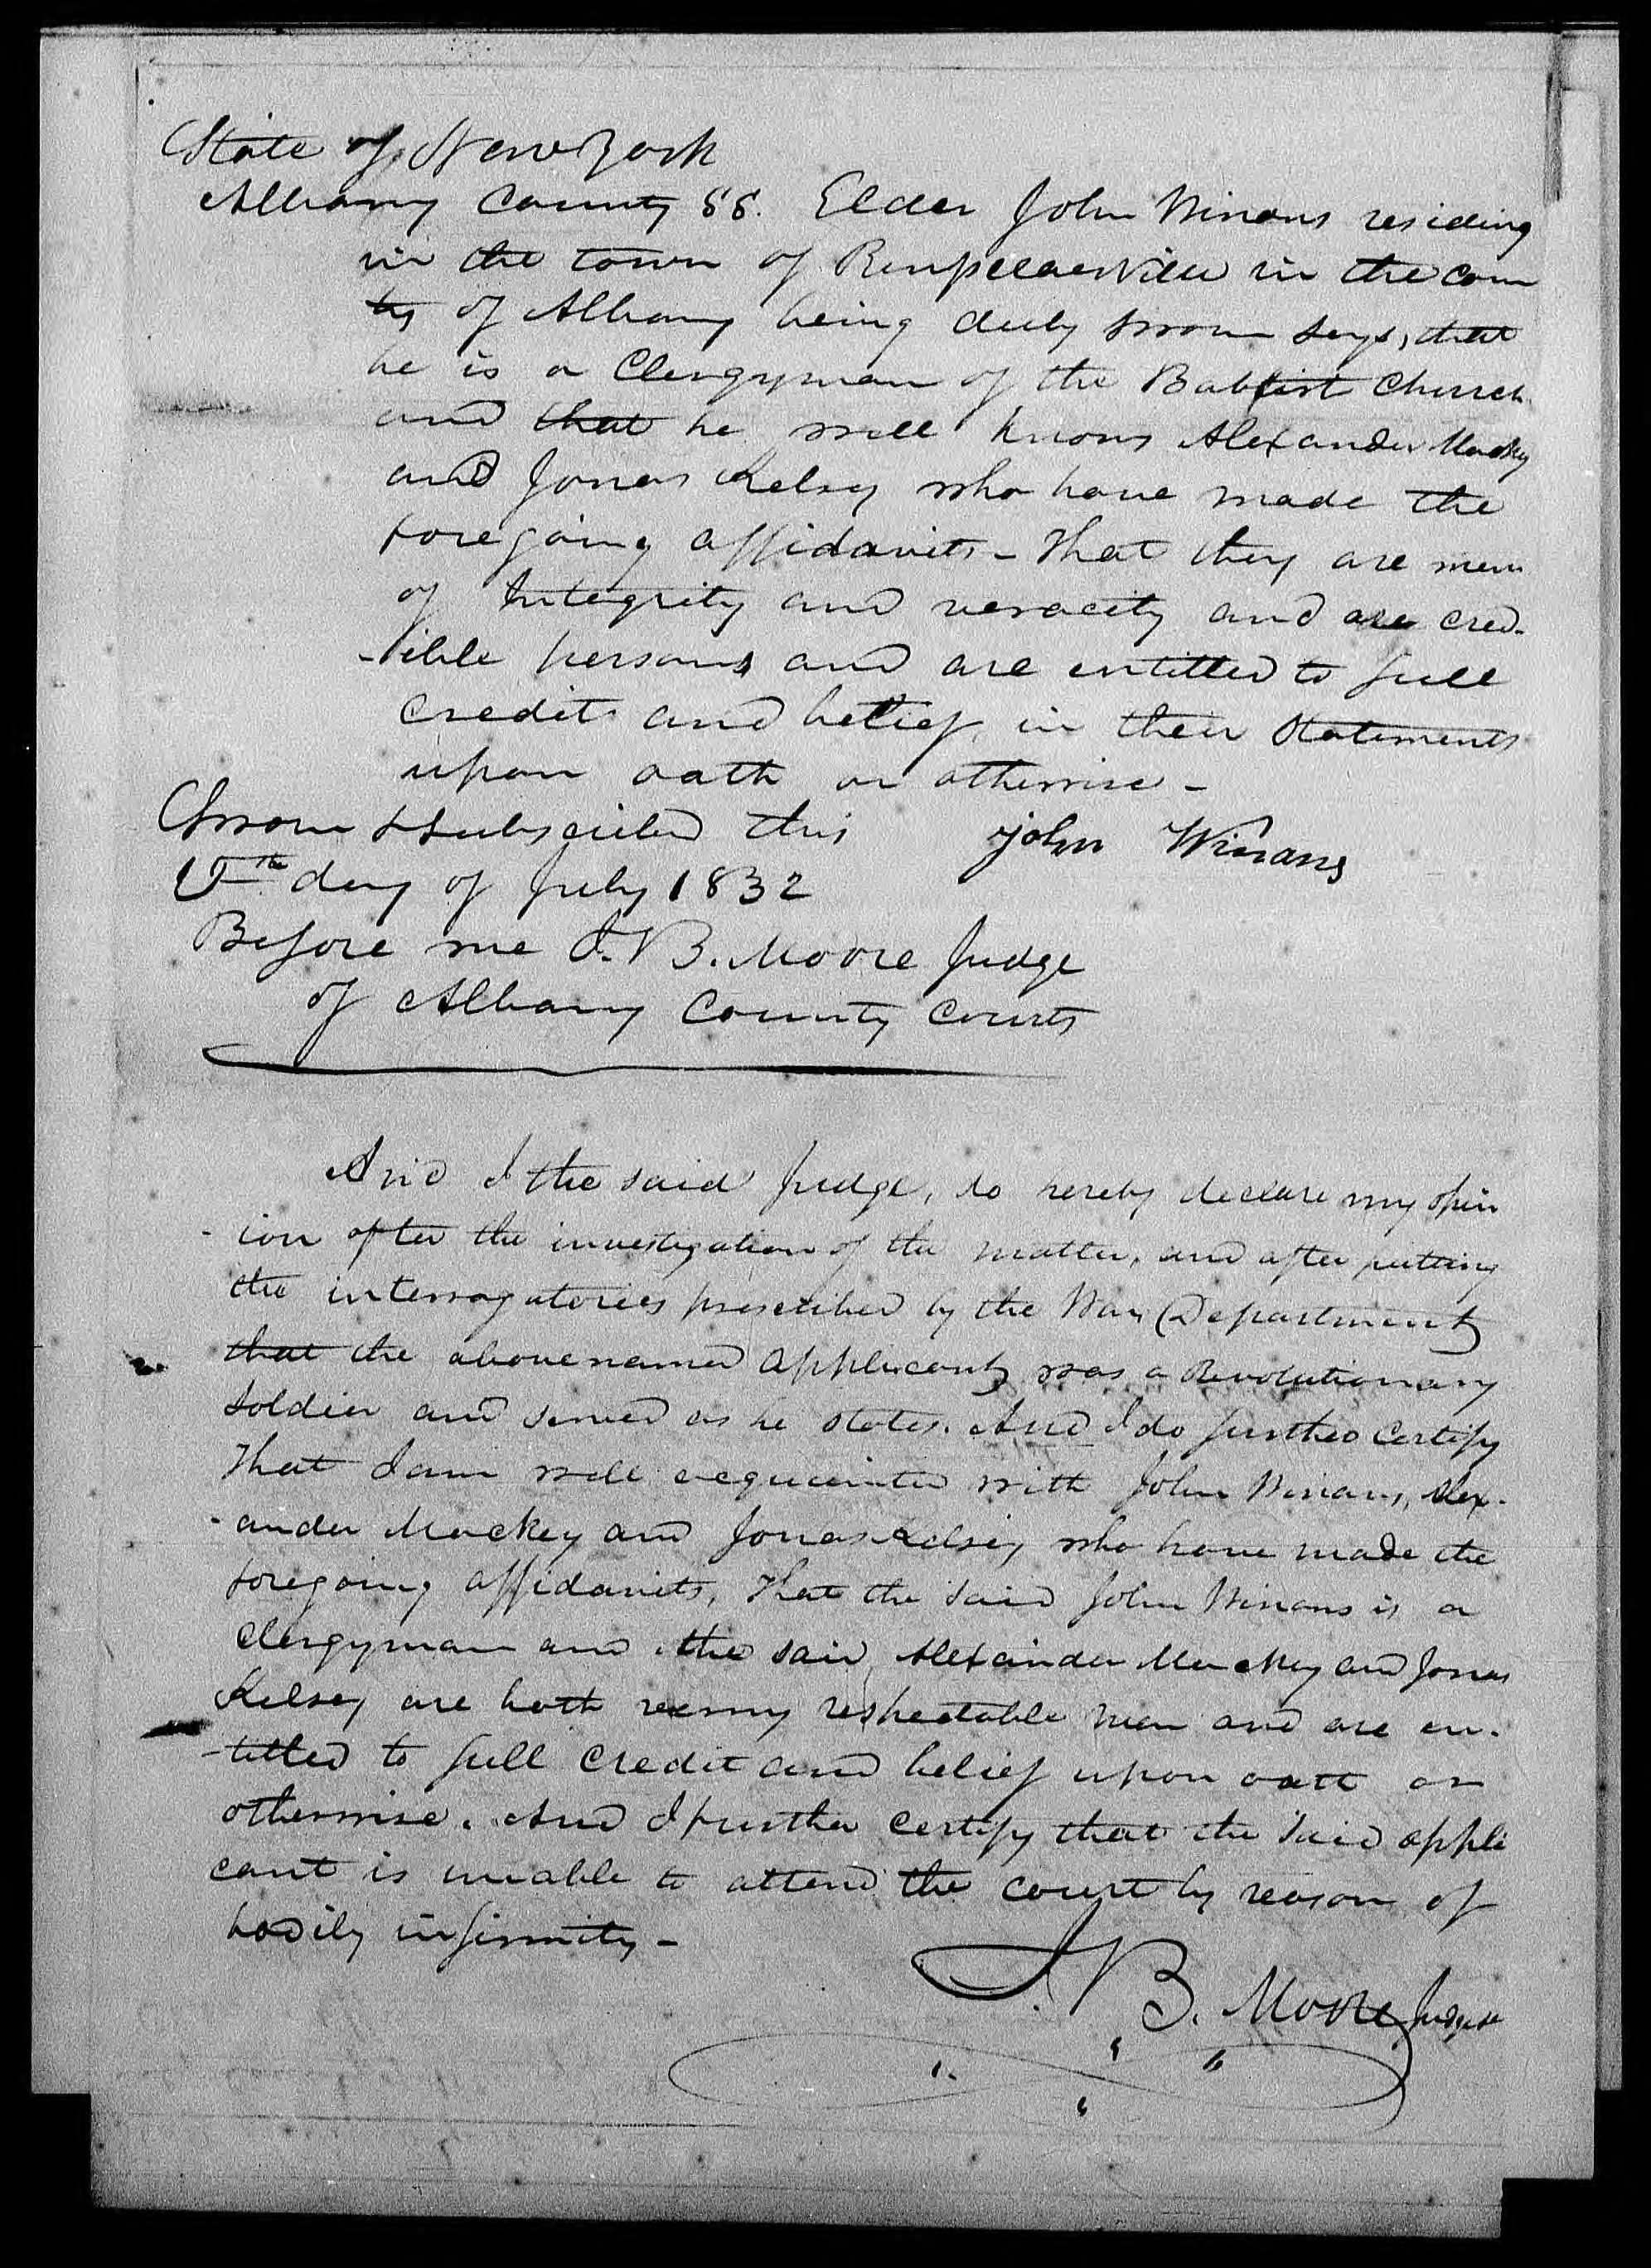 State of New York
Albany County SS. Elder John Winans residing
in the town of Rensselaerville in the coun
ty of Albany being duly sworn says, that
he is a Clergyman of the Babtist Church
and that he well knows Alexander Mackey
and Jonas Kelsey who have made the
foregoing affidavits - That they are men
of Integrity and veracity and are cred-
-ible persons and are entitled to full
credit and belief in their statements
upon oath or otherwise -
Sworn & Subscribed this John Winans
day of July 1832
Before me J. B. Moore Judge
of Albany County Courts
And I the said Judge, do hereby declare my opin
-ion after the investigation of the matter, and after putting
the interrogatories prescribed by the War Department
that the abovenamed applicant was a Revolutionary
soldier and served as he states. And I do further certify
That I am well acquainted with John Winans, Alex-
-ander Mackey and Jonas Kelsey who have made the
foregoing affidavits, That the said John Winans is a
Clergyman and the said Alexander Mackey and Jonas
Kelsey are both respectable men and are en-
-titled to full credit and belief upon oath or
otherwise. And I further certify that the said appli
cant is unable to attend the court by reason of
bodily infirmity -
J. B. Moore Judge